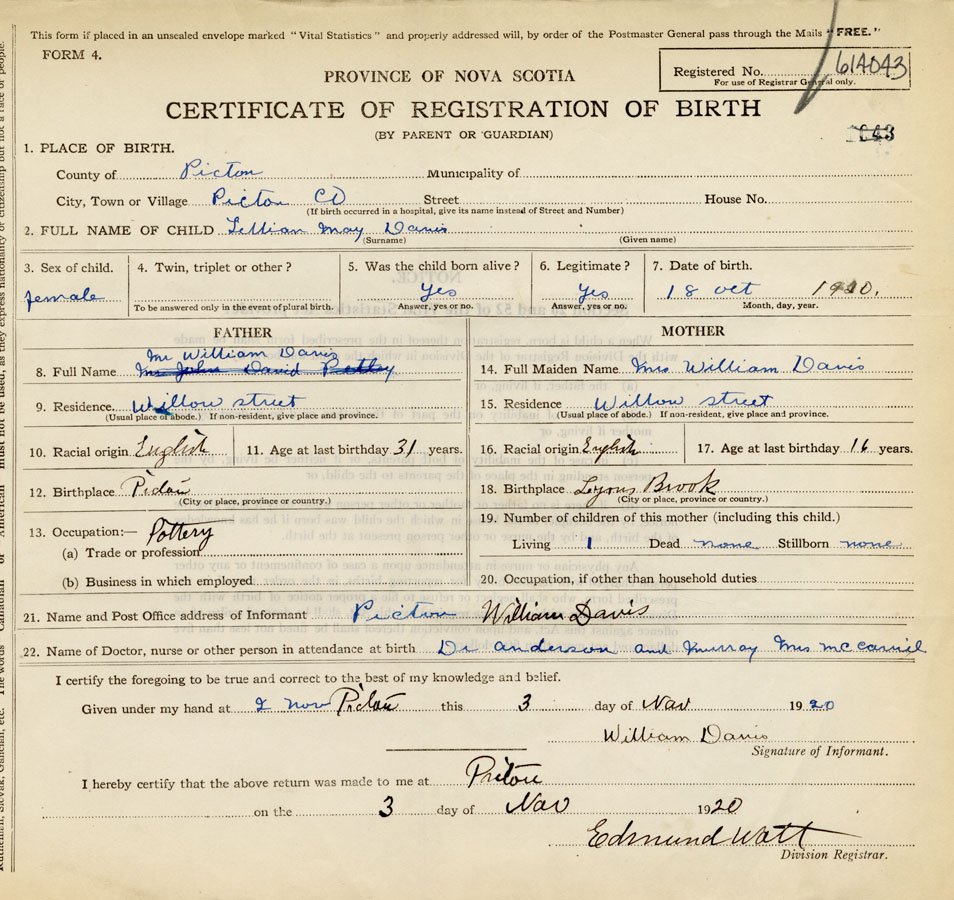 This form if placed in an unsealed envelope marked "Vital Statistics" and properly addressed will, by order of the Postmaster General pass through the Mails "FREE."
FORM 4.
Registered No. 614043
For use of Registrar General only.
PROVINCE OF NOVA SCOTIA
CERTIFICATE OF REGISTRATION OF BIRTH
(BY PARENT OR GUARDIAN)
1. PLACE OF BIRTH.
County of Picton Municipality of
City, Town or Village Picton Street House No.
(If birth occurred in a hospital, give its name instead of Street and Number)
2. FULL NAME OF CHILD Lillian May Davis
(Surname) (Given name)
3. Sex of child. 4. Twin, triplet or other? 5. Was the child born alive? 6. Legitimate? 7. Date of birth.
female Yes Yes 18 oct 1920.
To be answered only in the event of plural birth. Answer, yes or no. Answer, yes or no. Month, day, year.
FATHER
Mr William Davis
8. Full Name Mr John David
9. Residence. Willow street
(Usual place of abode.) If non-resident, give place and province.
10. Racial origin English 11. Age at last birthday 31 years.
12. Birthplace Pictou
(City or place, province or country.)
13. Occupation:— Pottery
(a) Trade or profession
(b) Business in which employed
MOTHER
14. Full Maiden Name Mrs William Davis
15. Residence Willow street
(Usual place of abode.) If non-resident, give place and province.
16. Racial origin English 17. Age at last birthday 16 years.
18. Birthplace Lyons Brook
(City or place, province or country.)
19. Number of children of this mother (including this child.)
Living 1 Dead none Stillborn none
20. Occupation, if other than household duties
21. Name and Post Office address of Informant Picton William Davis
22. Name of Doctor, nurse or other person in attendance at birth Dr anderson and Murray Mrs
I certify the foregoing to be true and correct to the best of my knowledge and belief.
Given under my hand at 2 nov Pictou this 3 day of Nov 1920
William Davis
Signature of Informant.
I hereby certify that the above return was made to me at Pictou
on the 3 day of Nov 1920
Edmund Watt
Division Registrar.